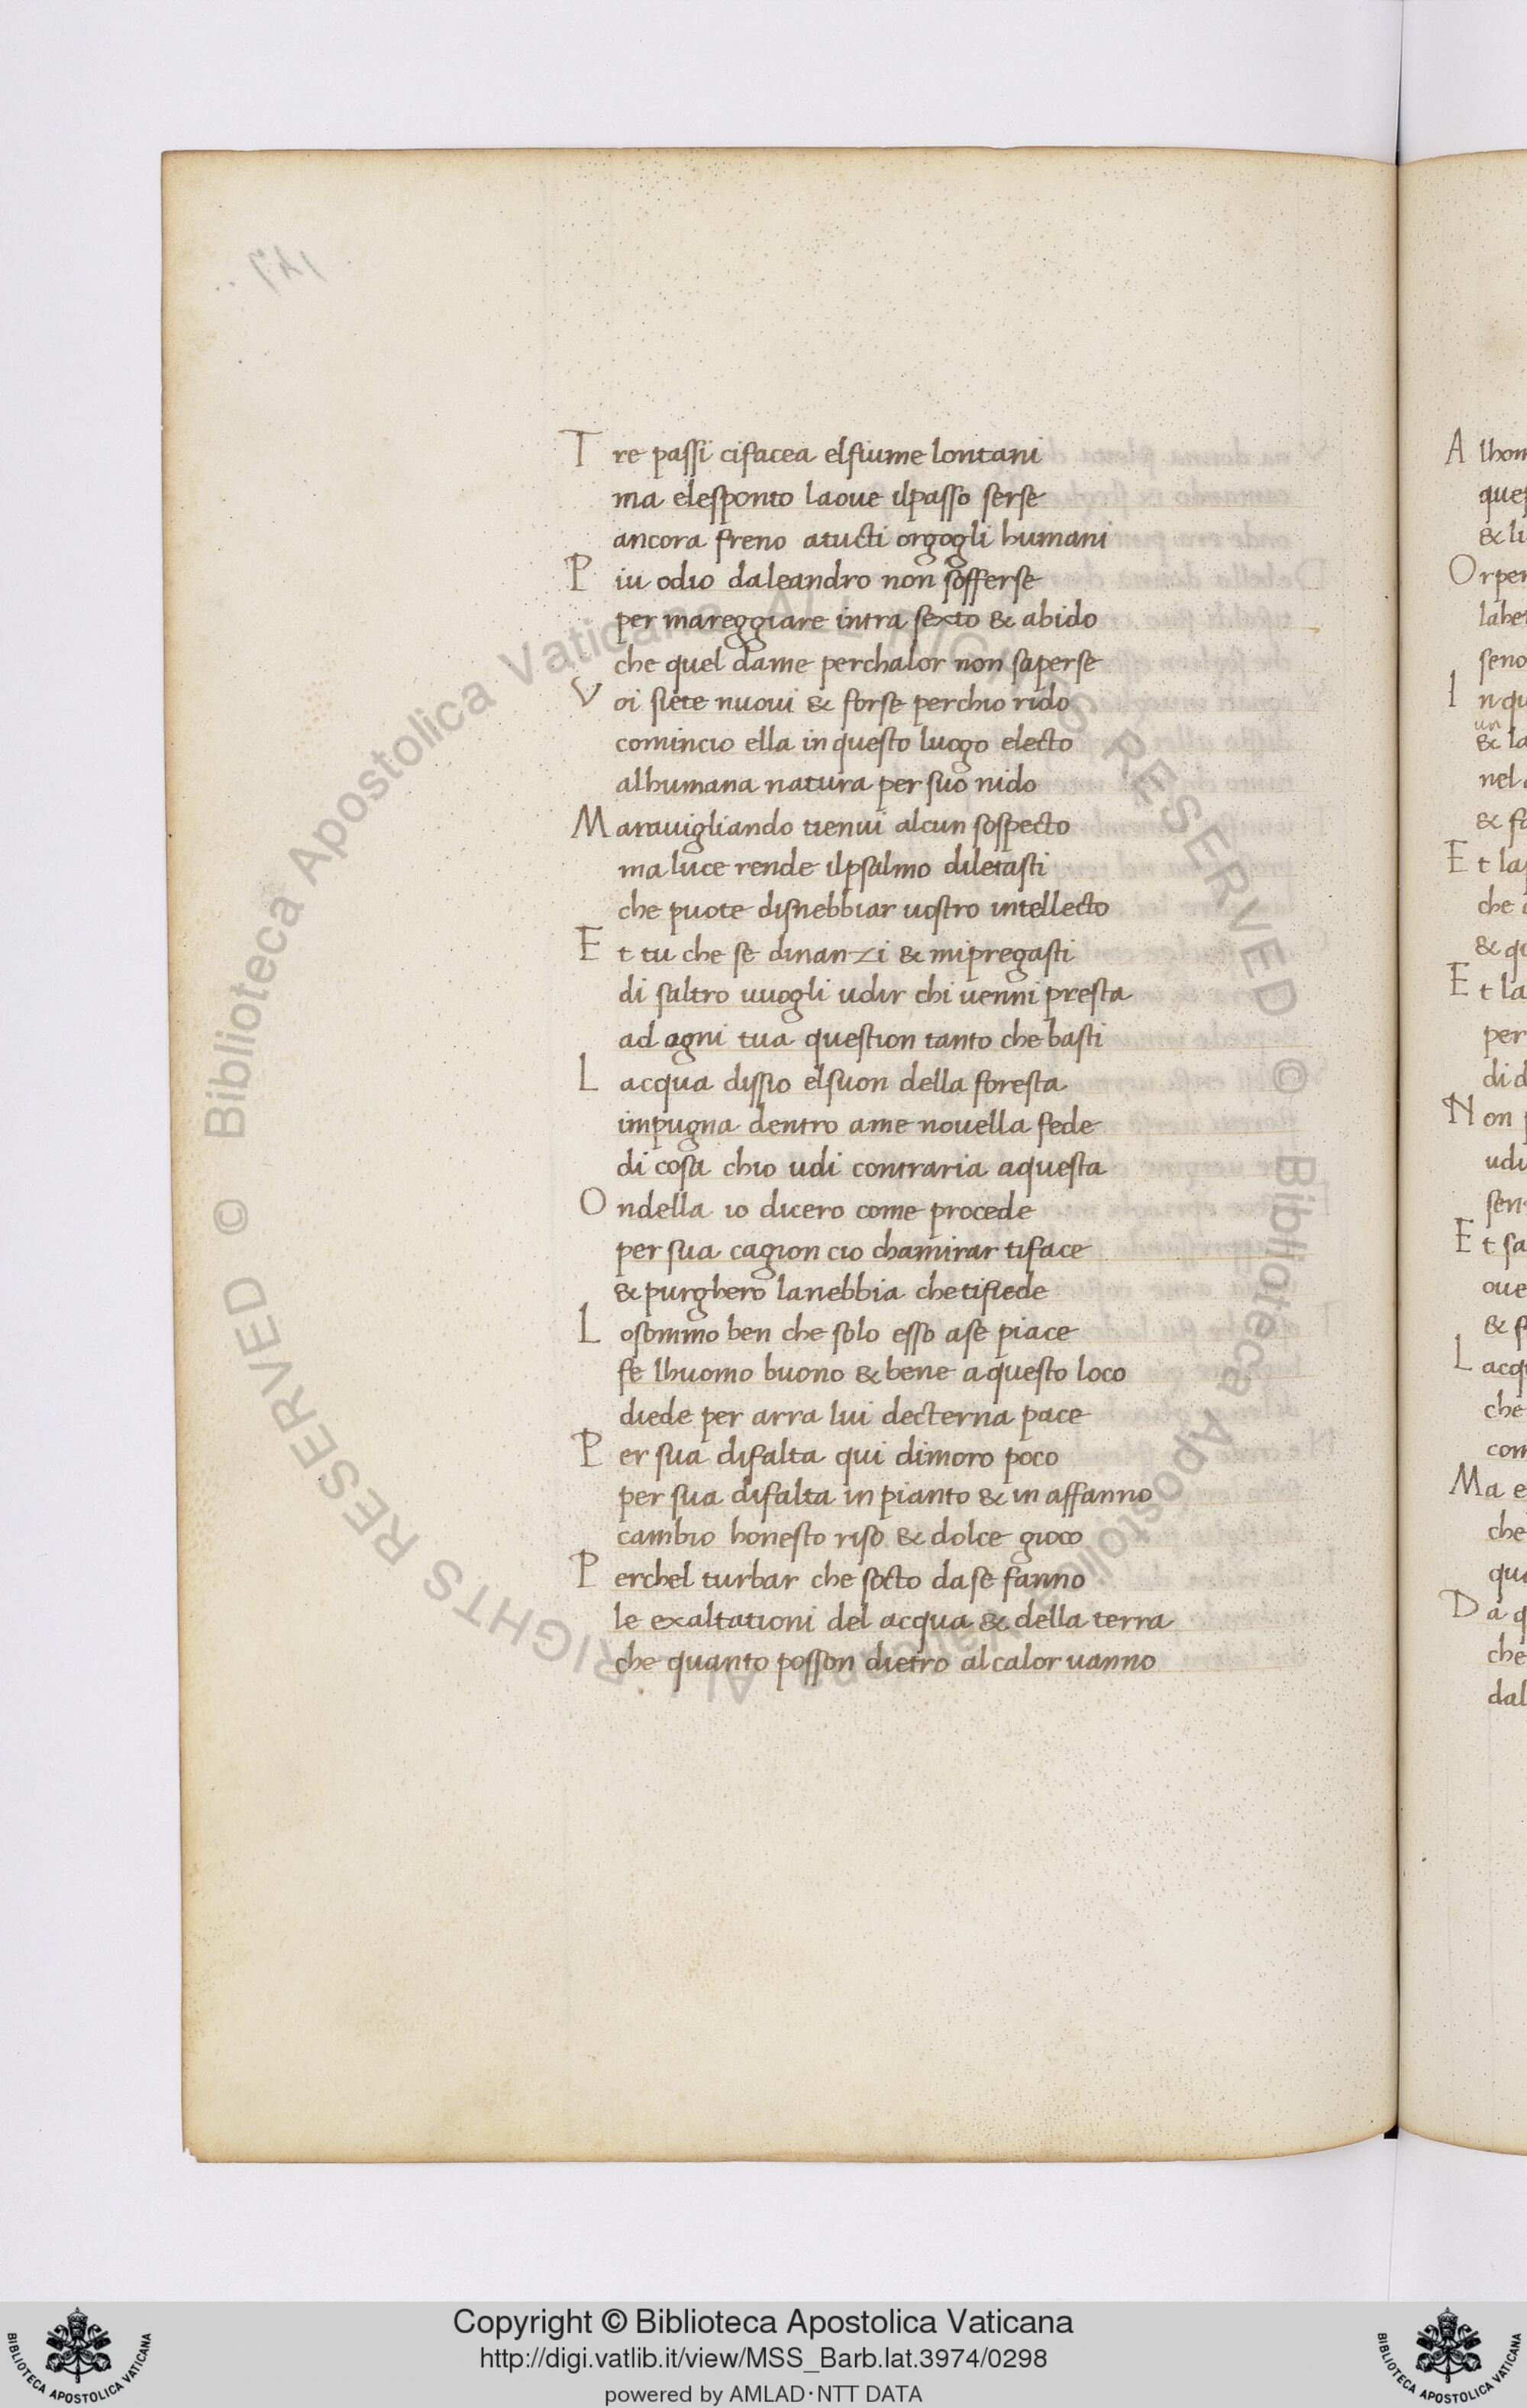 Tre passi cifacea elfiume lontani
ma elesponto laoue ilpasso serse
ancora freno atucti orgogli humani
Piu odio daleandro non sofferse
per mareggiare intra sexto & abido
che quel dame perchalor non saperse
Voi siete nuoui & forse perchio rido
comincio ella in questo luogo electo
alhumana natura per suo nido
Marauigliando tienui alcun sospecto
ma luce rende ilpsalmo diletasti
che puote disnebbiar uostro intellecto
Et tu che se dinanzi & mipregasti
di saltro uuogli udir chi uenni presta
ad ogni tua question tanto che basti
Lacqua dissio elsuon della foresta
impugna dentro ame nouella fede
di cosa chio udi contraria aquesta
Ondella io dicero come procede
per sua cagion cio chamirar tiface
& purghero lanebbia che tifiede
Losommo ben che solo esso ase piace
fe lhuomo buono & bene aquesto loco
diede per arra lui decterna pace
Per sua difalta qui dimoro poco
per sua difalta in pianto & in affanno
cambio honesto riso & dolce gioco
Perchel turbar che socto dase fanno
le exaltationi del acqua & della terra
che quanto posson dietro alcalor uanno
Copyright © Biblioteca Apostolica Vaticana
http://digi.vatlib.it/view/MSS_Barb.lat.3974/0298
powered by AMLAD·NTT DATA